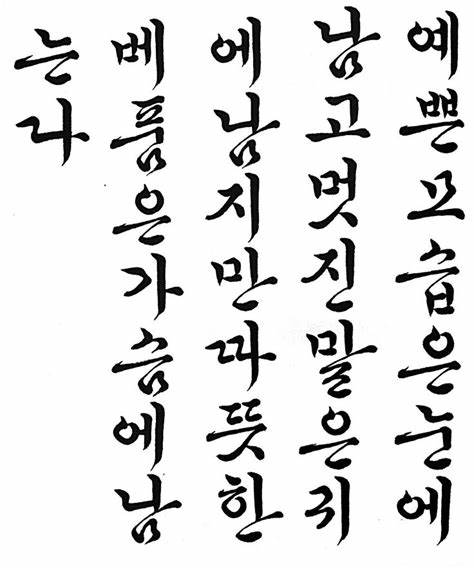 예쁜모습은눈에
남고멋진말은귀
에남지만따뜻한
베품은가슴에남
는다